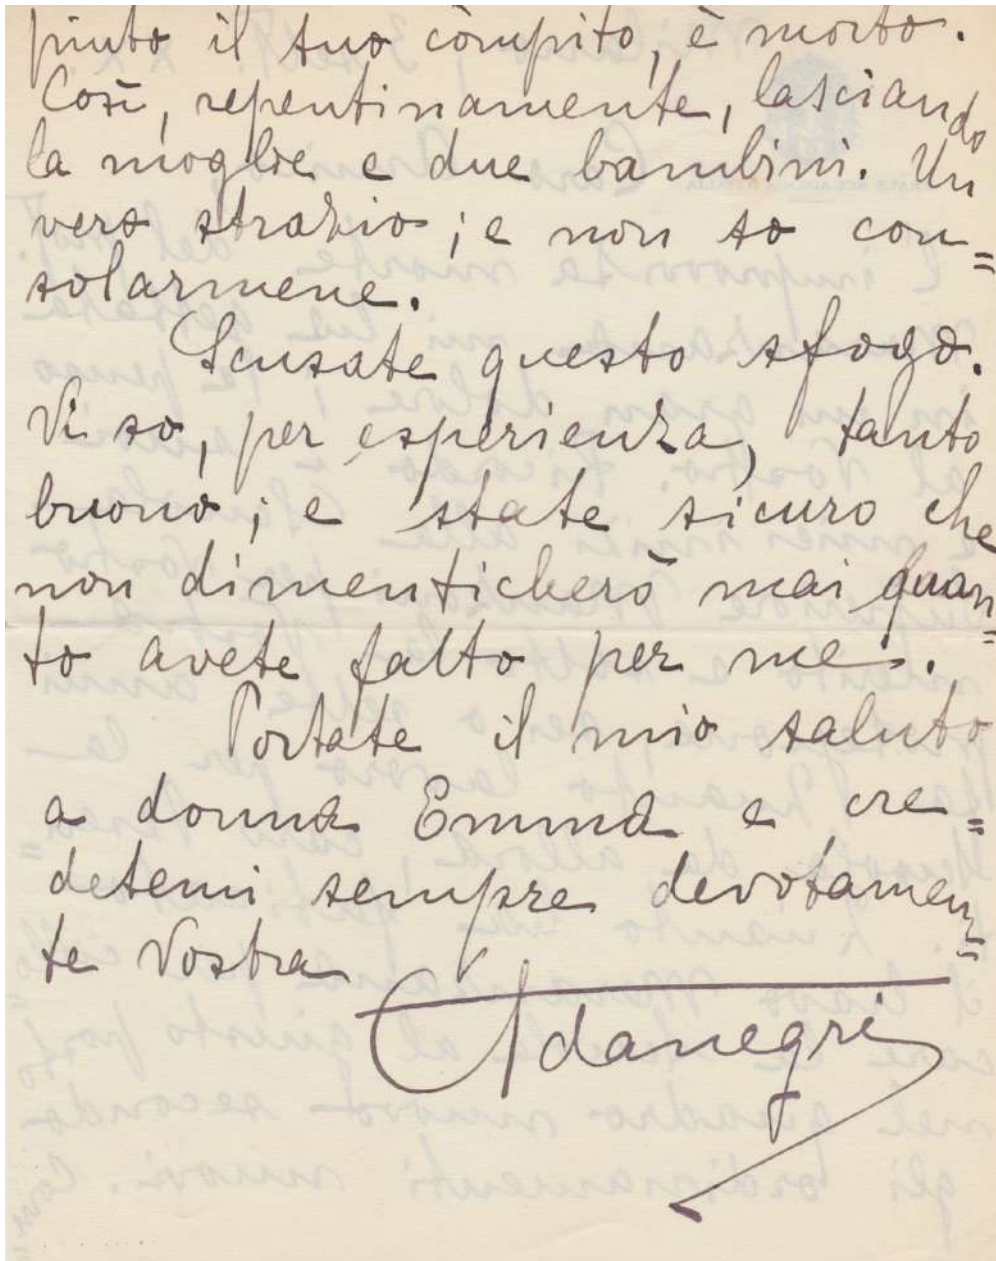 piuto il suo còmpito, è morto.
Così, repentinamente, lasciando
la moglie e due bambini. Un
vero strazio; e non so con=
solarmene.
Scusate questo sfogo.
Vi so, per esperienza, tanto
buono; e state sicuro che
non dimenticherò mai quan=
to avete fatto per me.
Portate il mio saluto
a donna Emma e cre=
detemi sempre devotamen=
te Vostra
Adanegri